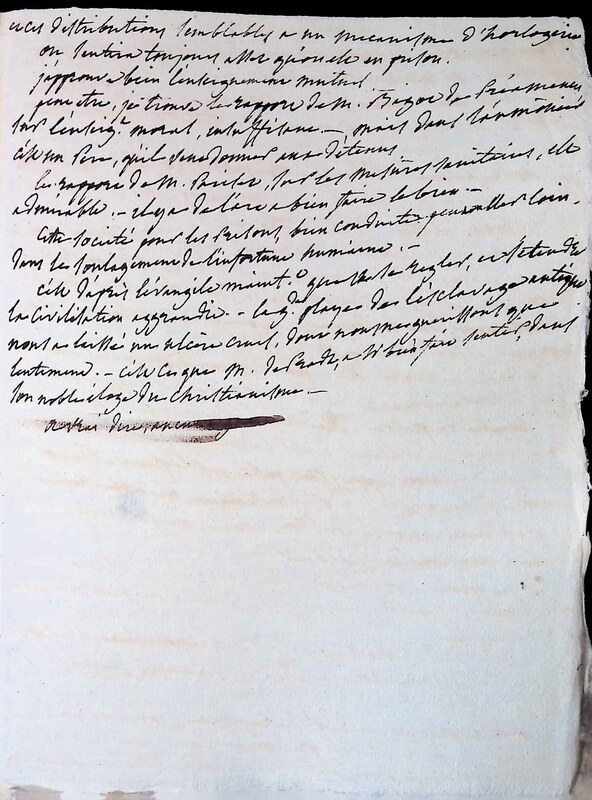 et ces distributions semblables a un mecanisme d'horlogerie
on sentira toujours aller qu'on est en prison.
j'approuve bien l'enseignement mutuel
peut etre, je trouve le rapport de M. Bigot de Préameneu
sur l'enseig.t moral, insuffisant. — mais dans l'aumônier
c'est un Pere, qu'il faut donner aux détenus
le rapport de M. Pariset, sur les mesures sanitaires, est
admirable. — il y a de l'art a bien faire le bien. —
Cette société pour les Prisons, bien conduite peut aller loin.
dans le soulagement de l'infortune humaine. —
c'est d'après l'évangile maint.t que tout se regler, et s'etendre
la civilisation aggrandie. — la g.de playe de l'esclavage antique
nous a laissé un ulcère cruel, dont nous ne guerissons que
lentement. — c'est ce que M. de Pradt, a si bien fait sentir, dans
son noble éloge du Christianisme. —
a vrai dire